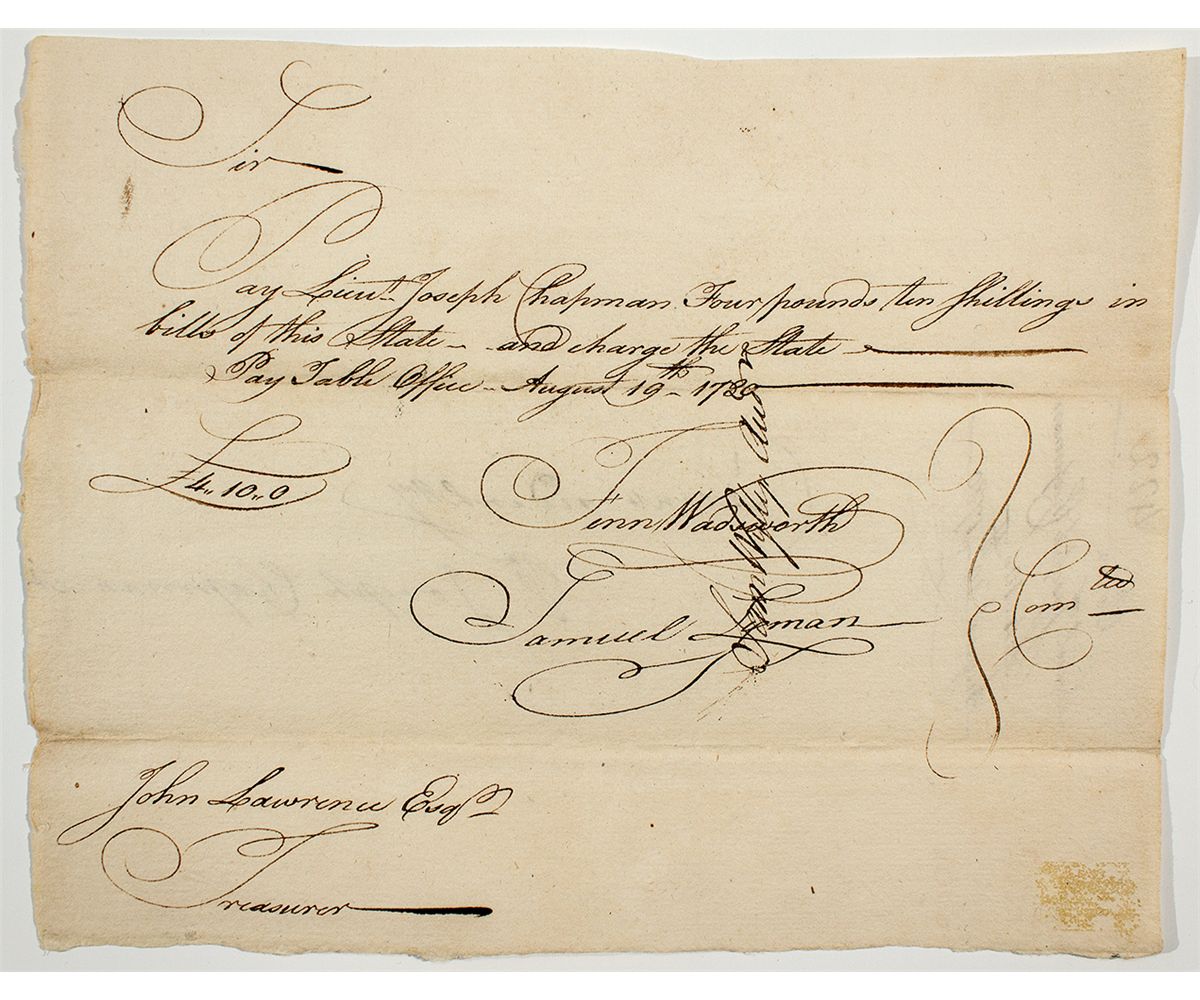 Sir
Pay Lieut. Joseph Chapman Four pounds ten shillings in
bills of this State – and charge the State –
Pay Table Office – August 19th – 1780
£4,, 10,, 0
Fenn Wadsworth
Samuel Lyman
Comtee
John Wyllys
John Lawrence Esqr
Treasurer